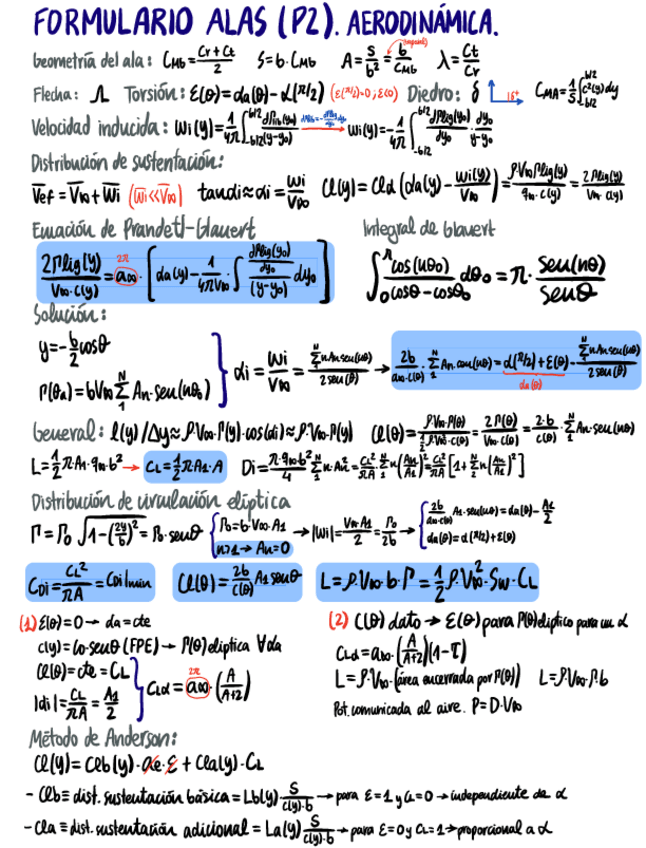 FORMULARIO ALAS (P2). AERODINÁMICA.
Geometría del ala: C_MG = (Cr+Ct)/2   S = b·C_MG   A = S/b² = b/C_MG   λ = Ct/Cr
Flecha: Λ   Torsión: ε(θ) = da(θ) - α(π/2) (ε(π/2)=0; ε(0)   Diedro: δ   C_MA = 1/S ∫_{-b/2}^{b/2} c²(y)dy
Velocidad inducida: Wi(y) = 1/4π ∫_{-b/2}^{b/2} → Wi(y) = -1/4π ∫_{-b/2}^{b/2} dΓlig(y)/dyo · dyo/(y-yo)
Distribución de sustentación:
Vef = V∞ + Wi (Wi<<V∞)   tandi ≈ di = Wi/V∞   Cl(y) = Cld (da(y) - Wi(y)/V∞) = ρ·V∞Γlig(y)/(q∞·c(y)) = 2Γlig(y)/(V∞ c(y))
Ecuación de Prandetl-Glauert   Integral de Glauert
2Γlig(y)/(V∞·c(y)) = a∞ · [da(y) - 1/(4πV∞) · ∫ (dΓlig(yo)/dyo)/(y-yo) dyo]   2π   ∫_0^π cos(nθo)/(cosθ-cosθo) dθo = π · sen(nθ)/senθ
Solución:
y = -b/2 cosθ
Γ(θo) = bV∞ Σ_1^N An·sen(nθo)
di = Wi/V∞ = Σ_1^N nAnsen(nθ)/(2sen(θ)) → 2b/(a∞·c(θ)) · Σ_1^N An·sen(nθ) = α(π/2)+ε(θ) - Σ_1^N nAnsen(nθ)/(2sen(θ))
da(θ)
General: l(y)/Δy ≈ ρ·V∞·Γ(y)·cos(di) ≈ ρ·V∞·Γ(y)   Cl(θ) = ρ·V∞·Γ(θ)/(1/2 ρ·V∞²·c(θ)) = 2Γ(θ)/(V∞·c(θ)) = 2·b/c(θ) · Σ_1^N An·sen(nθ)
L = 1/2 π·A1·q∞·b² → CL = 1/2 π·A1·A   Di = π·q∞·b²/4 Σ_1^N n·An² = CL²/πA · Σ_1^N n(An/A1)² = CL²/πA [1+Σ_2^N n(An/A1)²]
Distribución de circulación elíptica
Γ = Γo √(1-(2y/b)²) = Γo·senθ   { Γo = b·V∞·A1   n>1 → An=0   → |Wi| = V∞·A1/2 = Γo/2b → { 2b/(a∞·c(θ)) A1·sen(θ) = da(θ) - A1/2   da(θ) = α(π/2)+ε(θ)
CDi = CL²/πA = CDi|min   Cl(θ) = 2b/c(θ) A1senθ   L = ρ·V∞·b·Γ = 1/2 ρ·V∞²·Sw·CL
(1) ε(θ) = 0 → da = cte   (2) C(θ) dato → ε(θ) para Γ(θ) elíptico para un α
c(y) = Co·senθ (FPE) → Γ(θ) elíptica ∀da   CLα = a∞·(A/(A+2))(1-τ)
Cl(θ) = cte = CL   L = ρ·V∞·(área encerrada por Γ(θ))   L = ρ·V∞·Γ·b
|di| = CL/πA = A1/2   CLα = a∞·(A/(A+2))   2π   Pot. comunicada al aire. P = D·V∞
Método de Anderson:
Cl(y) = Clb(y)·ae·ε + Cla(y)·CL
- Clb ≡ dist. sustentación básica = Lb(y) S/(c(y)·b) → para ε=1 y CL=0 → independiente de α
- Cla ≡ dist. sustentación adicional = La(y) S/(c(y)·b) → para ε=0 y CL=1 → proporcional a α